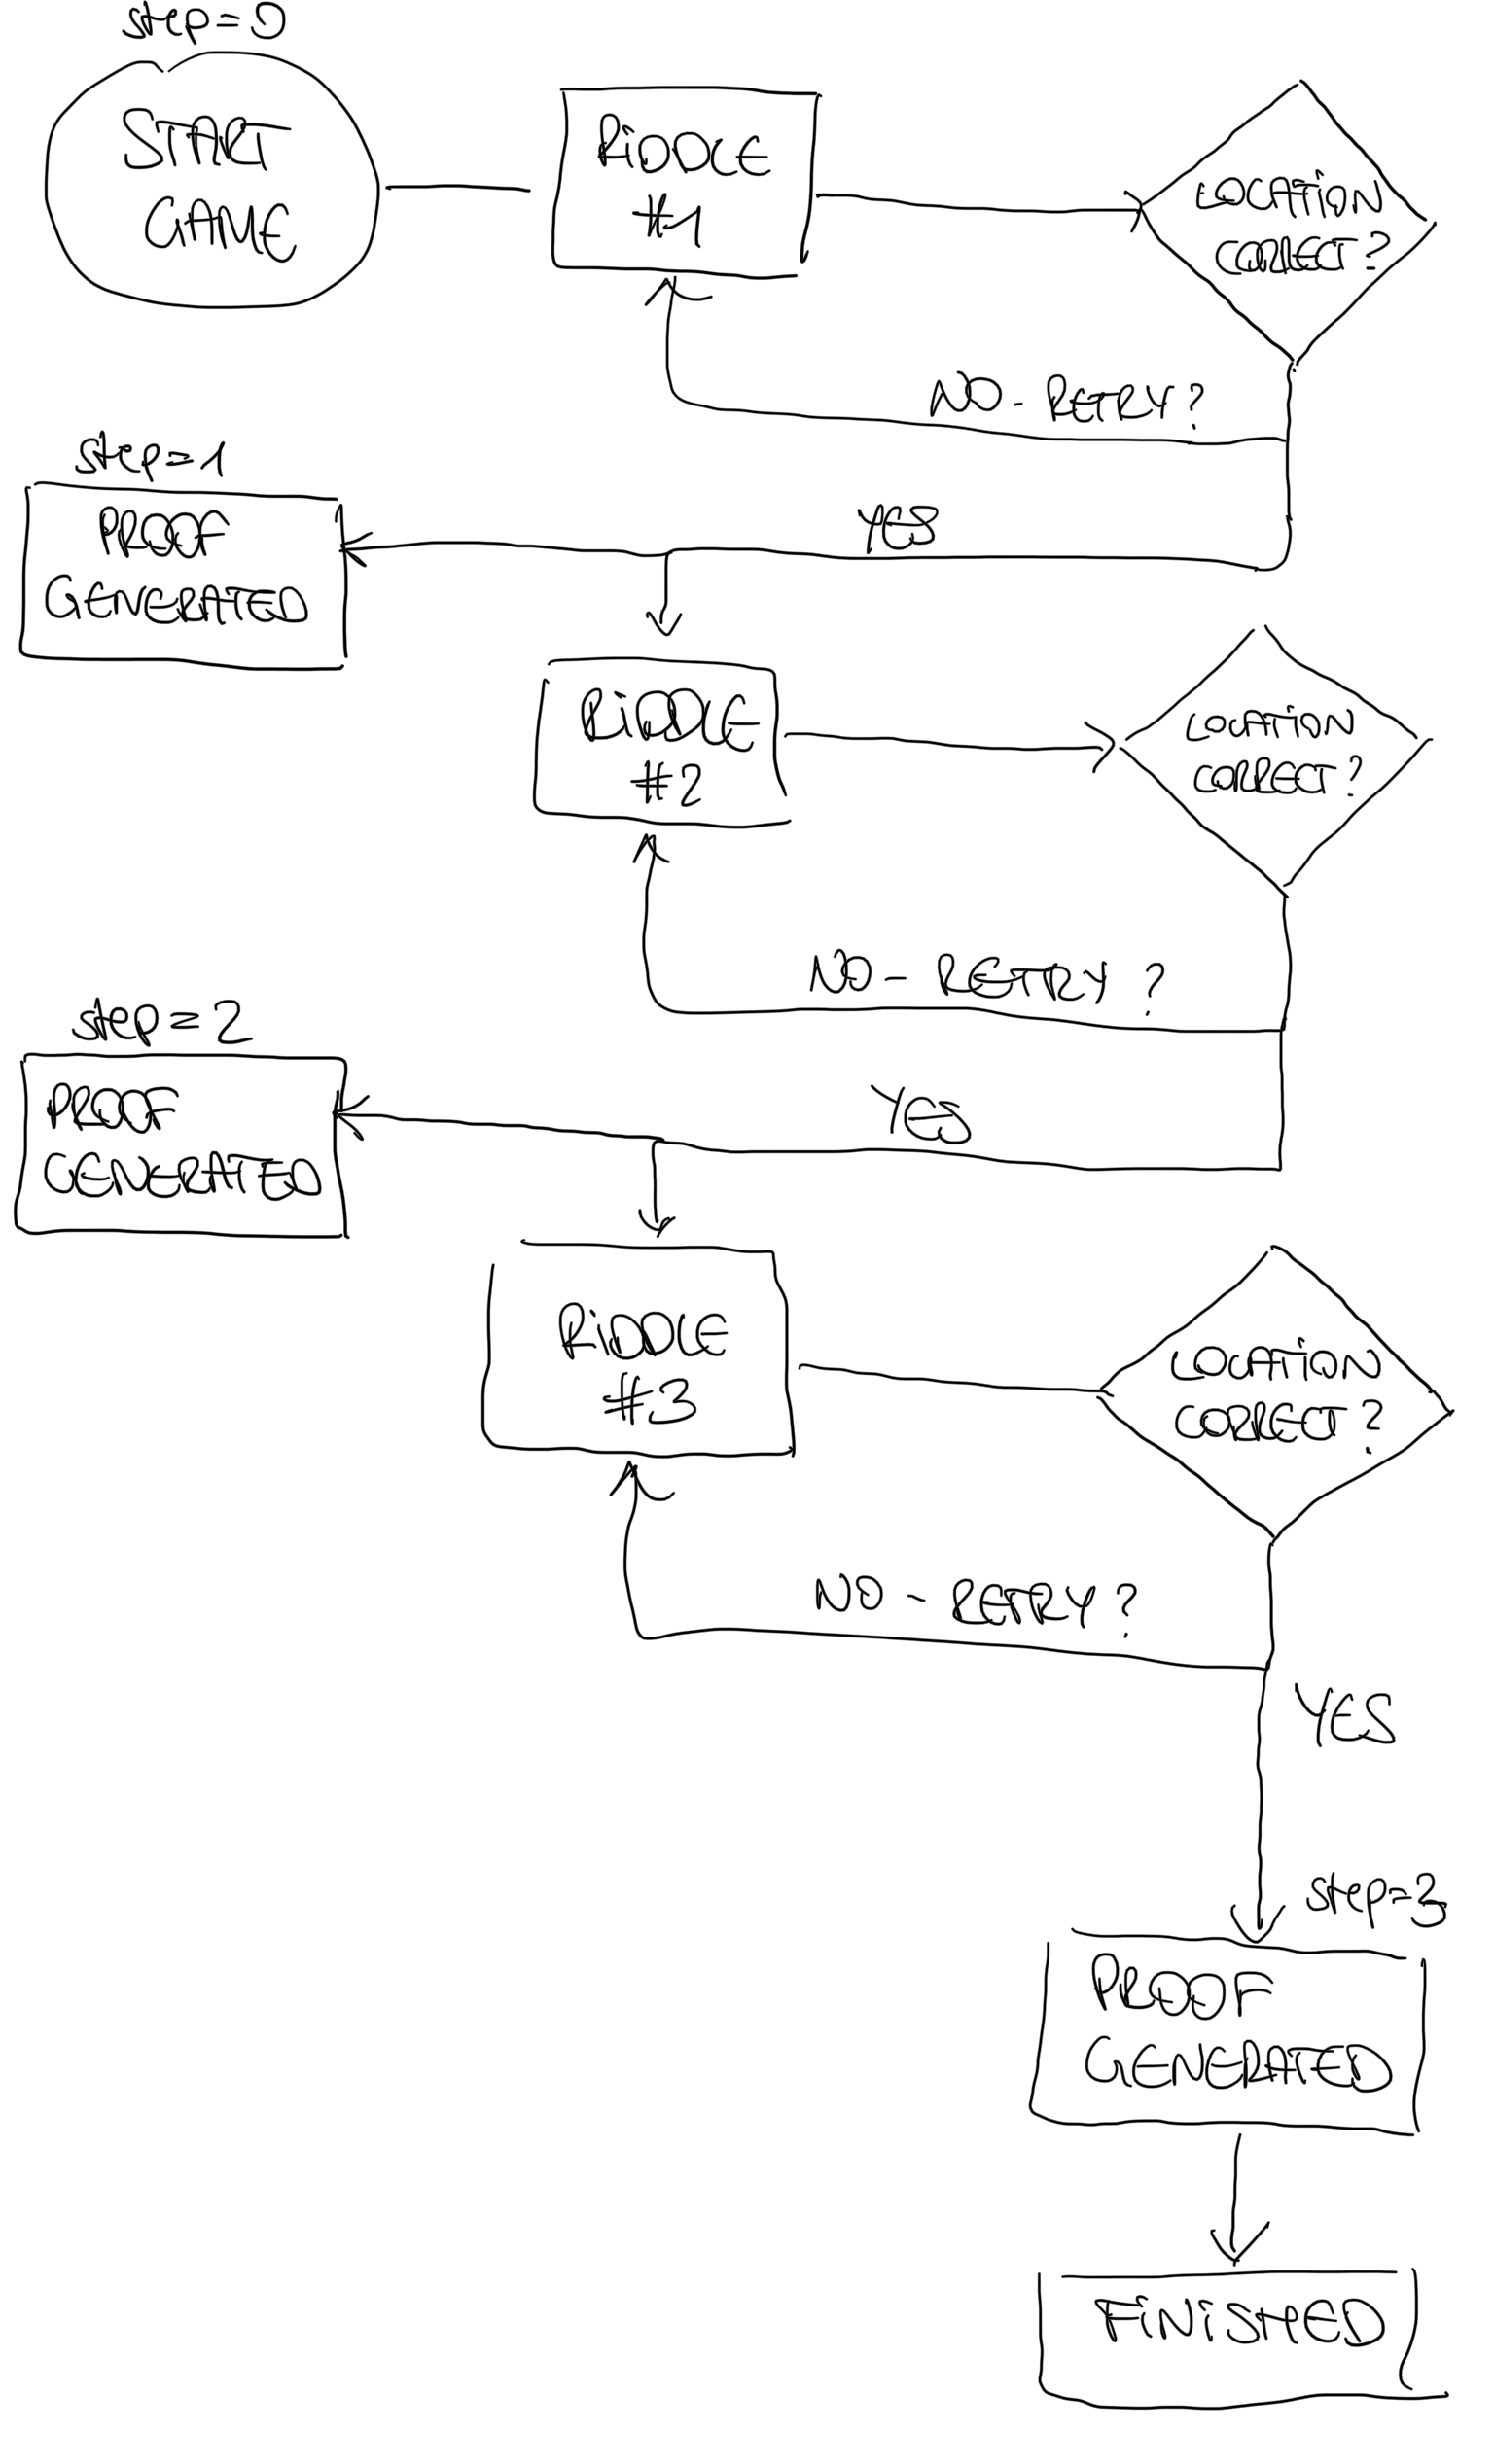 step=0
START
GAME
RiDDLE
#1
LOCATiON
CORRECT?
NO - RETRY?
step=1
PROOF
GENERATED
YES
RiDDLE
#2
LOCATiON
CORRECT?
NO - RETRY?
step=2
PROOF
GENERATED
YES
RiDDLE
#3
LOCATiON
CORRECT?
NO - RETRY?
YES
step=3
PROOF
GENERATED
FiNiSHED